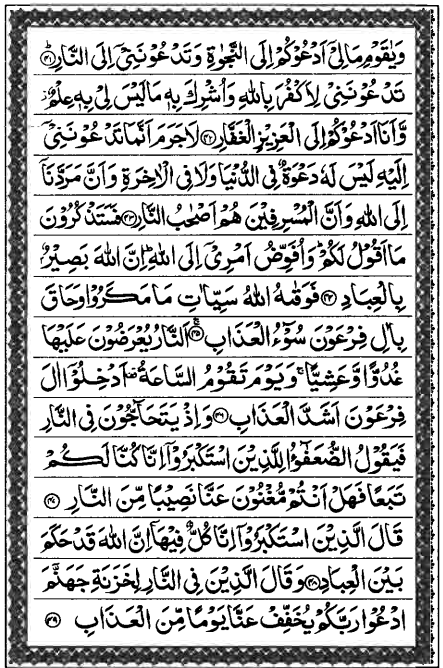 وَيٰقَوْمِ مَالِيْۤ اَدْعُوْكُمْ اِلَى النَّجٰوةِ وَتَدْعُوْنَنِيْۤ اِلَى النَّارِؕ ﴿۴۱﴾
تَدْعُوْنَنِيْ لِاَكْفُرَ بِاللّٰهِ وَاُشْرِكَ بِهٖ مَا لَيْسَ لِيْ بِهٖ عِلْمٌ٘
وَّاَنَا اَدْعُوْكُمْ اِلَى الْعَزِيْزِ الْغَفَّارِ ﴿۴۲﴾ لَاجَرَمَ اَنَّمَا تَدْعُوْنَنِيْۤ
اِلَيْهِ لَيْسَ لَهٗ دَعْوَةٌ فِي الدُّنْيَا وَلَا فِي الْاٰخِرَةِ وَاَنَّ مَرَدَّنَاۤ
اِلَى اللّٰهِ وَاَنَّ الْمُسْرِفِيْنَ هُمْ اَصْحٰبُ النَّارِ ﴿۴۳﴾ فَسَتَذْكُرُوْنَ
مَاۤ اَقُوْلُ لَكُمْؕ وَاُفَوِّضُ اَمْرِيْۤ اِلَى اللّٰهِؕ اِنَّ اللّٰهَ بَصِيْرٌۢ
بِالْعِبَادِ ﴿۴۴﴾ فَوَقٰىهُ اللّٰهُ سَيِّاٰتِ مَا مَكَرُوْا وَحَاقَ
بِاٰلِ فِرْعَوْنَ سُوْٓءُ الْعَذَابِۚ ﴿۴۵﴾ اَلنَّارُ يُعْرَضُوْنَ عَلَيْهَا
غُدُوًّا وَّعَشِيًّاۚ وَيَوْمَ تَقُوْمُ السَّاعَةُ۫ اَدْخِلُوْۤا اٰلَ
فِرْعَوْنَ اَشَدَّ الْعَذَابِ ﴿۴۶﴾ وَاِذْ يَتَحَآجُّوْنَ فِي النَّارِ
فَيَقُوْلُ الضُّعَفٰٓؤُا لِلَّذِيْنَ اسْتَكْبَرُوْۤا اِنَّا كُنَّا لَكُمْ
تَبَعًا فَهَلْ اَنْتُمْ مُّغْنُوْنَ عَنَّا نَصِيْبًا مِّنَ النَّارِ ﴿۴۷﴾
قَالَ الَّذِيْنَ اسْتَكْبَرُوْۤا اِنَّا كُلٌّ فِيْهَاۤ اِنَّ اللّٰهَ قَدْ حَكَمَ
بَيْنَ الْعِبَادِ ﴿۴۸﴾ وَقَالَ الَّذِيْنَ فِي النَّارِ لِخَزَنَةِ جَهَنَّمَ
ادْعُوْا رَبَّكُمْ يُخَفِّفْ عَنَّا يَوْمًا مِّنَ الْعَذَابِ ﴿۴۹﴾